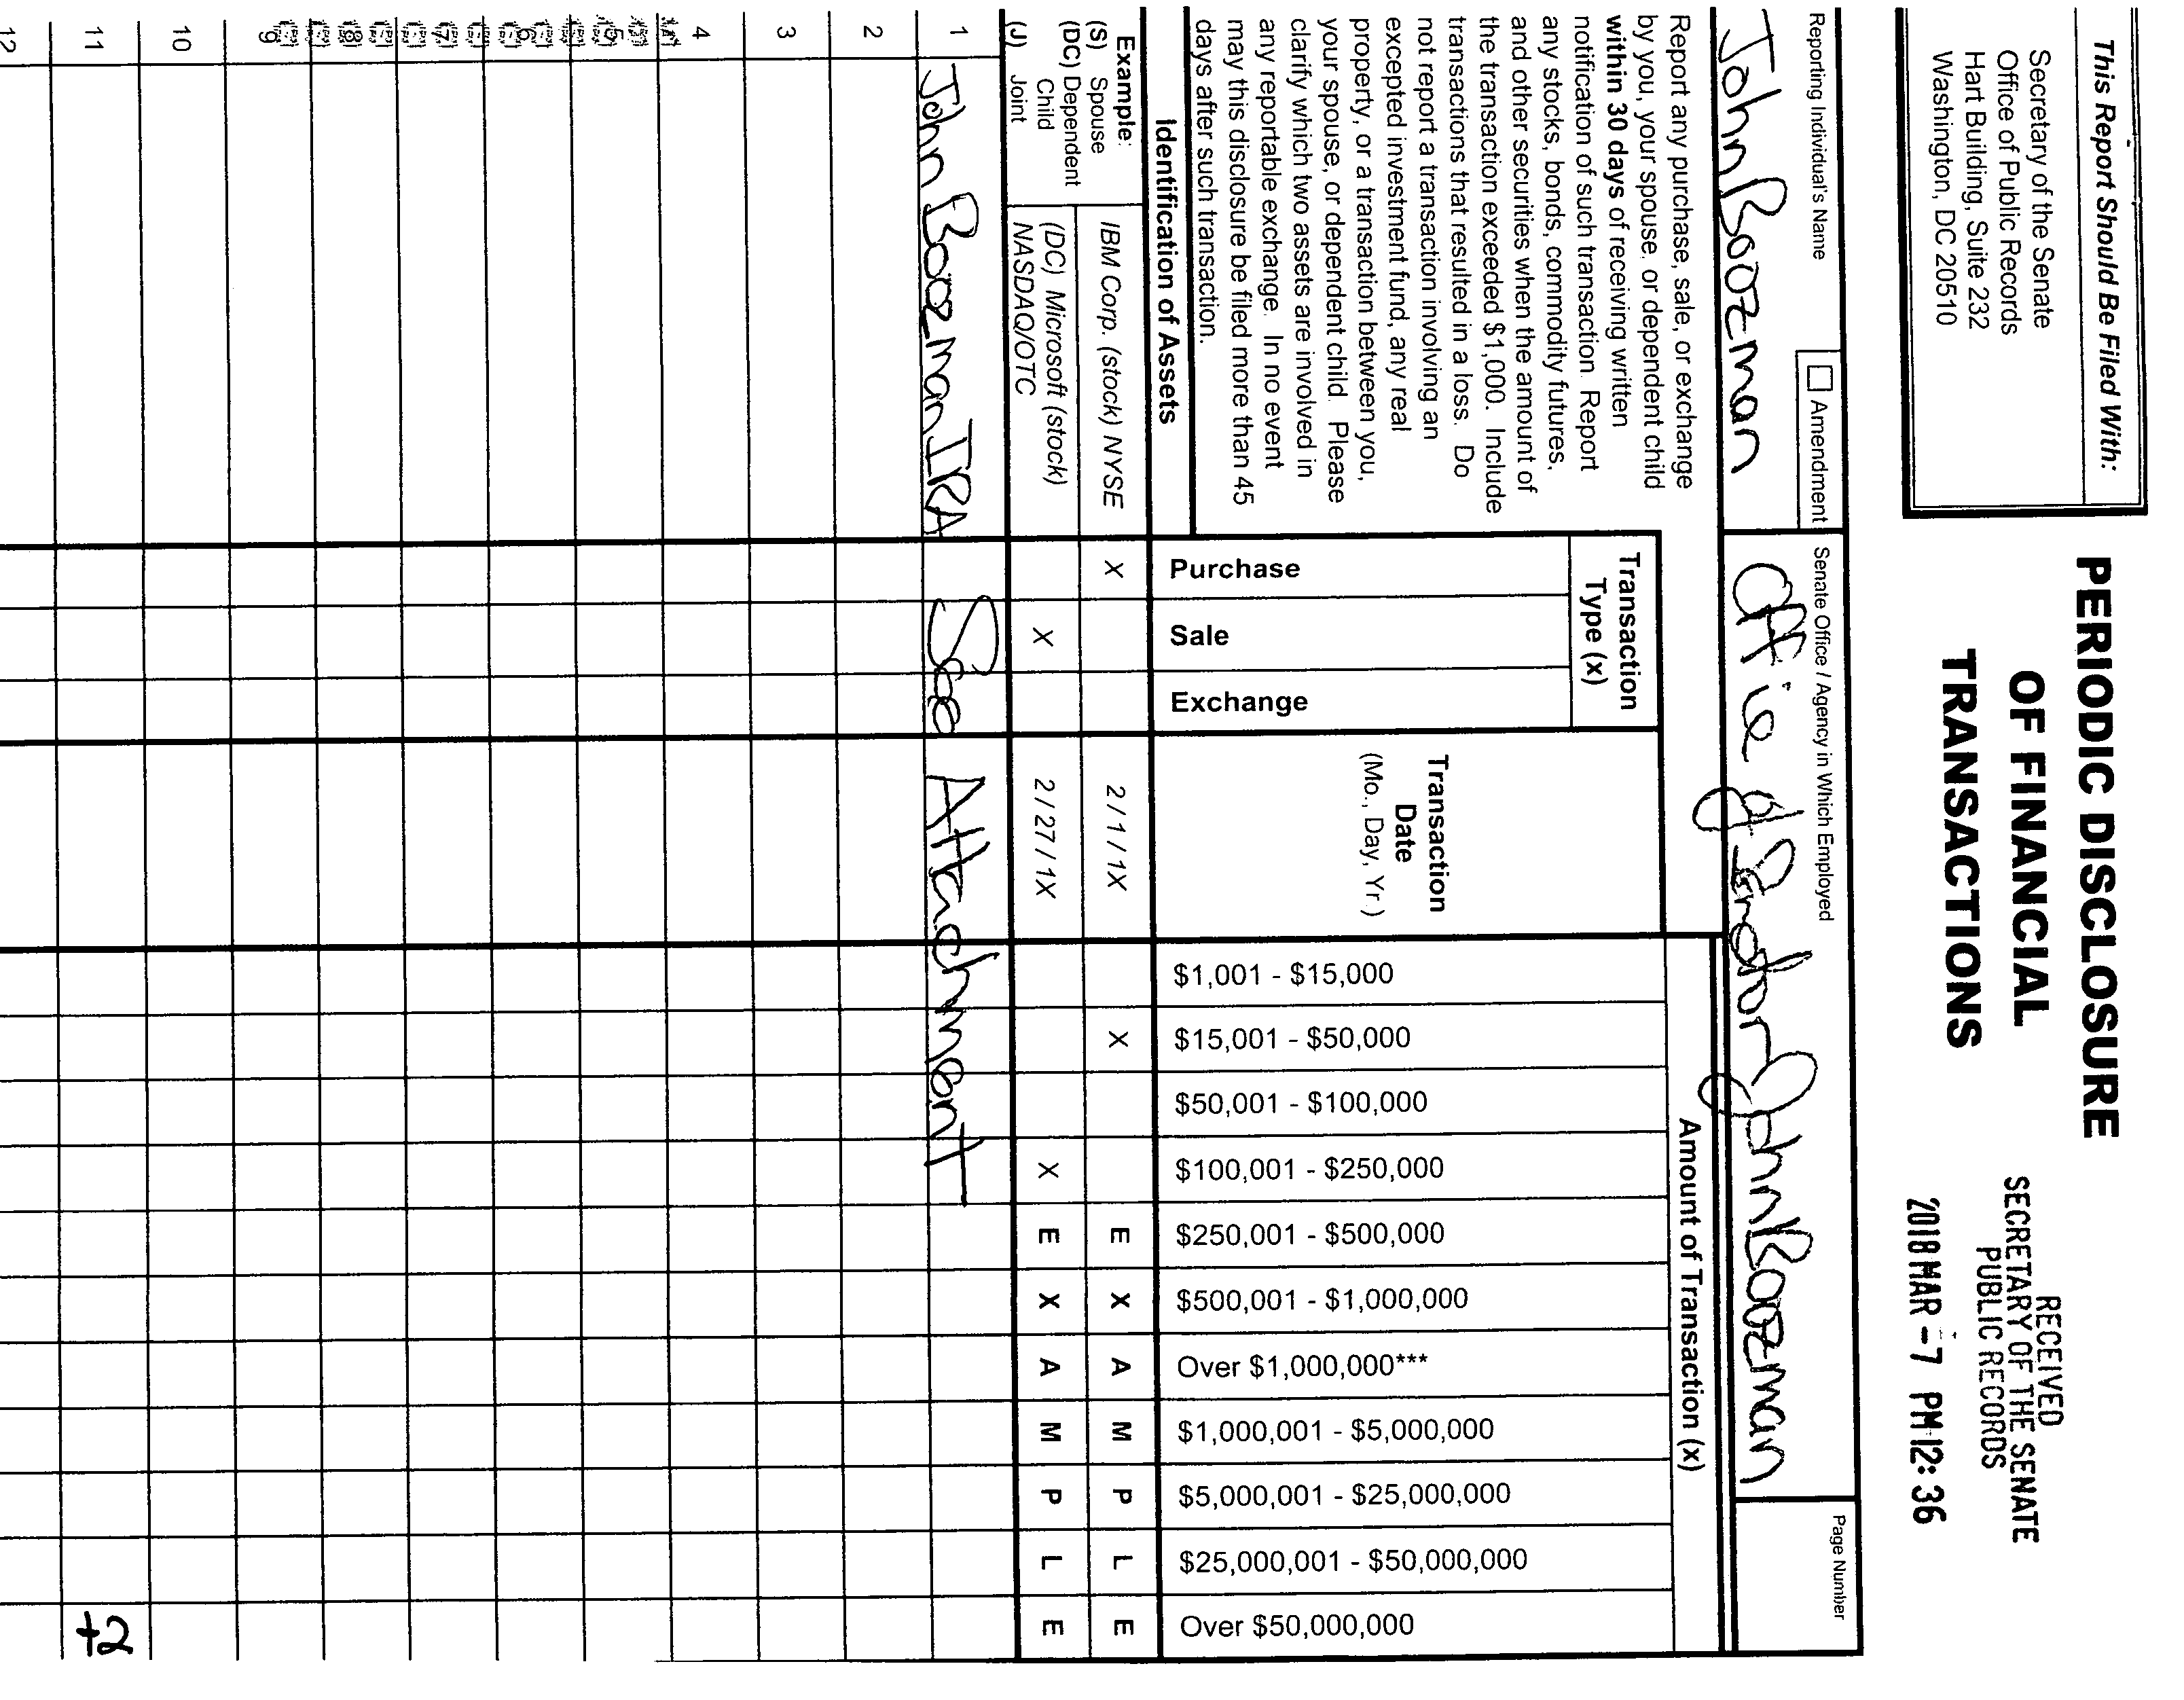 This Report Should Be Filed With:
Secretary of the Senate
Office of Public Records
Hart Building, Suite 232
Washington, DC 20510
PERIODIC DISCLOSURE
OF FINANCIAL
TRANSACTIONS
RECEIVED
SECRETARY OF THE SENATE
PUBLIC RECORDS
2018 MAR -7 PM 12: 36
Reporting Individual's Name
John Boozman
Amendment
Senate Office / Agency in Which Employed
Office of Senator John Boozman
Page Number
Report any purchase, sale, or exchange
by you, your spouse, or dependent child
within 30 days of receiving written
notification of such transaction. Report
any stocks, bonds, commodity futures,
and other securities when the amount of
the transaction exceeded $1,000. Include
transactions that resulted in a loss. Do
not report a transaction involving an
excepted investment fund, any real
property, or a transaction between you,
your spouse, or dependent child. Please
clarify which two assets are involved in
any reportable exchange. In no event
may this disclosure be filed more than 45
days after such transaction.
Identification of Assets
Transaction
Type (x)
Purchase
Sale
Exchange
Transaction
Date
(Mo., Day, Yr.)
Amount of Transaction (x)
$1,001 - $15,000
$15,001 - $50,000
$50,001 - $100,000
$100,001 - $250,000
$250,001 - $500,000
$500,001 - $1,000,000
Over $1,000,000***
$1,000,001 - $5,000,000
$5,000,001 - $25,000,000
$25,000,001 - $50,000,000
Over $50,000,000
Example:
(S) Spouse
(DC) Dependent
Child
(J) Joint
IBM Corp. (stock) NYSE X 2 / 1 / 1X X E X A M P L E
(DC) Microsoft (stock)
NASDAQ/OTC X 2 / 27 / 1X X E X A M P L E
1 John Boozman IRA See Attachment
2
3
4
5
6
7
8
9
10
11
12
+2